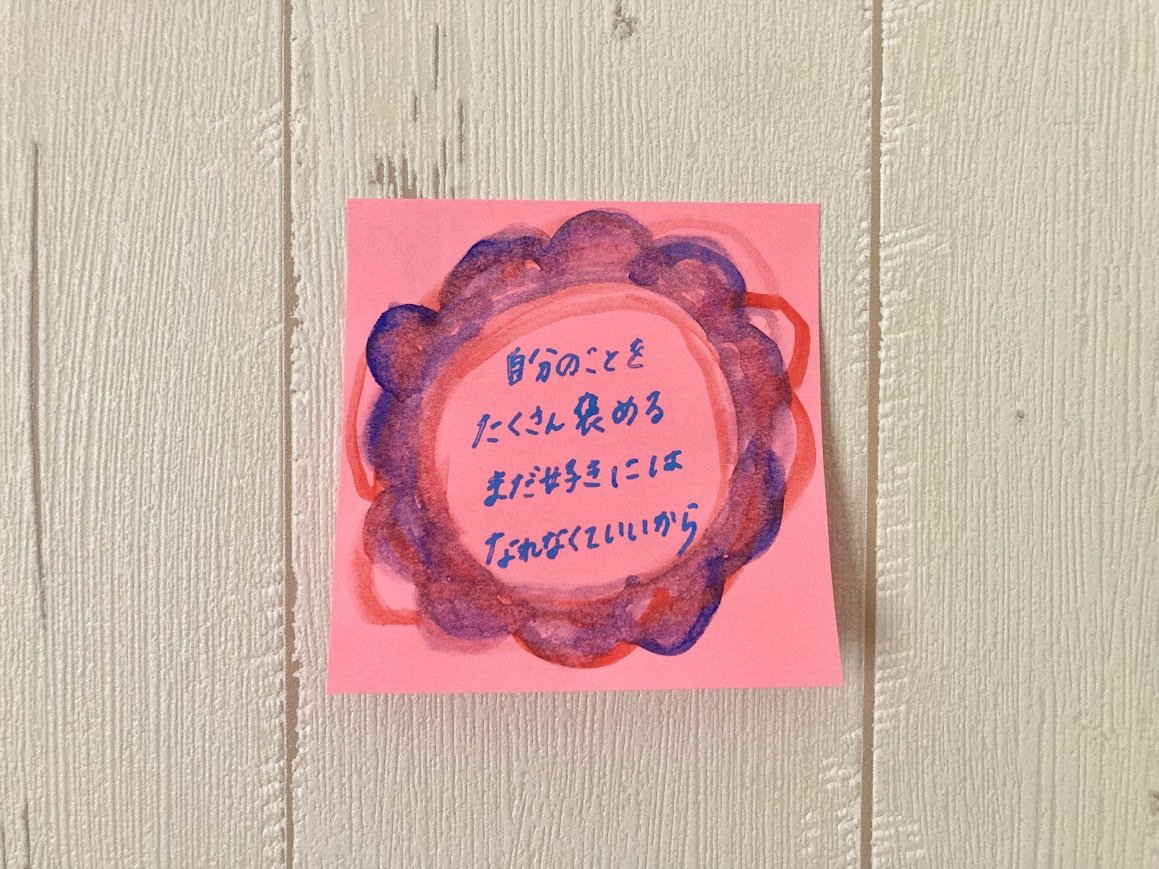 自分のことを
たくさん褒める
まだ好きには
なれなくていいから